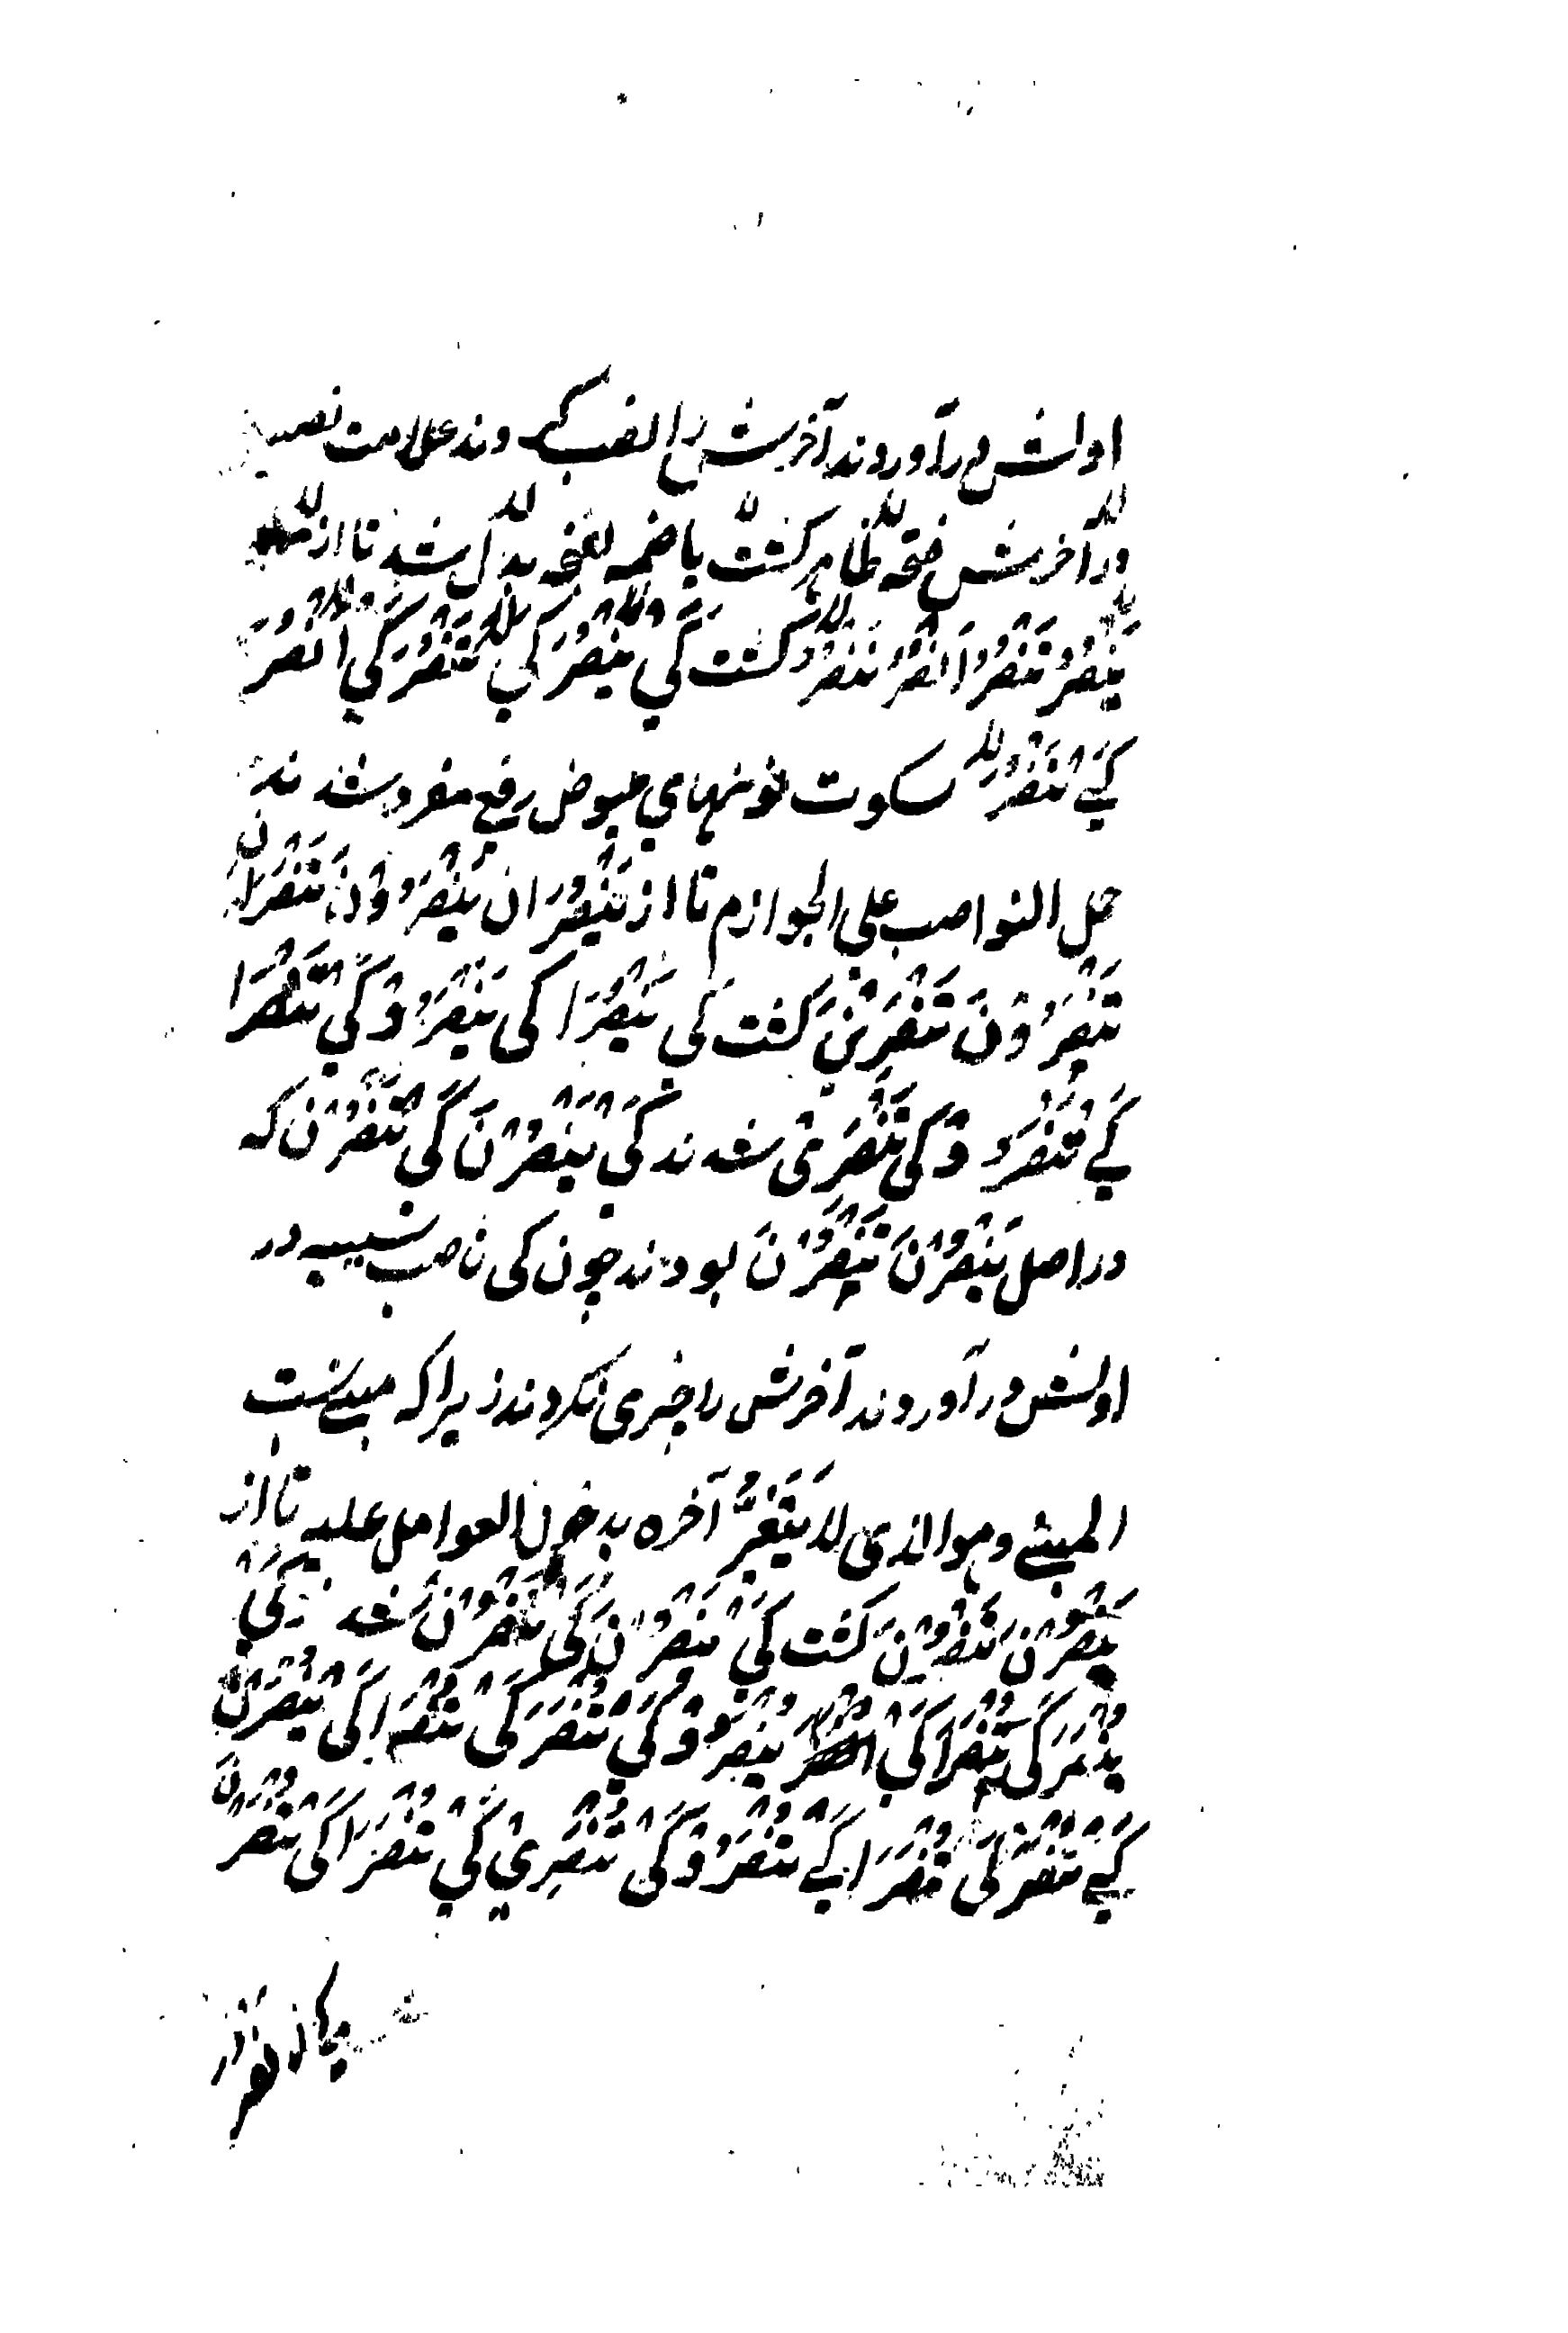 اولش در آوردند آخرش را نصب کردند علامت نصب
در آخرش فتحه ظاهر گشت یا ضمه بفتحه بدل شد تا از
یَنْصُرُ تَنْصُرُ اَنْصُرُ نَنْصُرُ گشت کَیْ یَنْصُرَ کَیْ تَنْصُرَ کَیْ اَنْصُرَ
کَیْ نَنْصُرَ سکوت نونهای عوض رفع مفرد شدند
حمل النواصب علی الجوازم تا از یَنْصُرَانِ یَنْصُرُوْنَ تَنْصُرَانِ
تَنْصُرُوْنَ تَنْصُرِیْنَ گشت کی یَنْصُرَا کی یَنْصُرُوْ کَیْ تَنْصُرَا
کَیْ تَنْصُرُوْ کی تَنْصُرِیْ شدند کَیْ یَنْصُرْنَ کَیْ تَنْصُرْنَ که
در اصل یَنْصُرْنَ تَنْصُرْنَ بودند چون کی ناصبیه در
اولش در آوردند آخرش را چیزی نکردند زیرا که مبنی است
المبنی وهو الذی لا یَتَغَیَّرُ آخره بدخول العوامل علیه تا از
یَنْصُرْنَ تَنْصُرْنَ گشت کَیْ یَنْصُرْنَ کَیْ تَنْصُرْنَ شدند کَیْ
یُنْصَرَ کَیْ یُنْصَرَا کَیْ یُنْصَرُوْ کَیْ تُنْصَرَ کَیْ تُنْصَرَا کَیْ یُنْصَرْنَ
کَیْ تُنْصَرَ کَیْ تُنْصَرَا کَیْ تُنْصَرُوْ کَیْ تُنْصَرِیْ کَیْ تُنْصَرَا کَیْ تُنْصَرْنَ